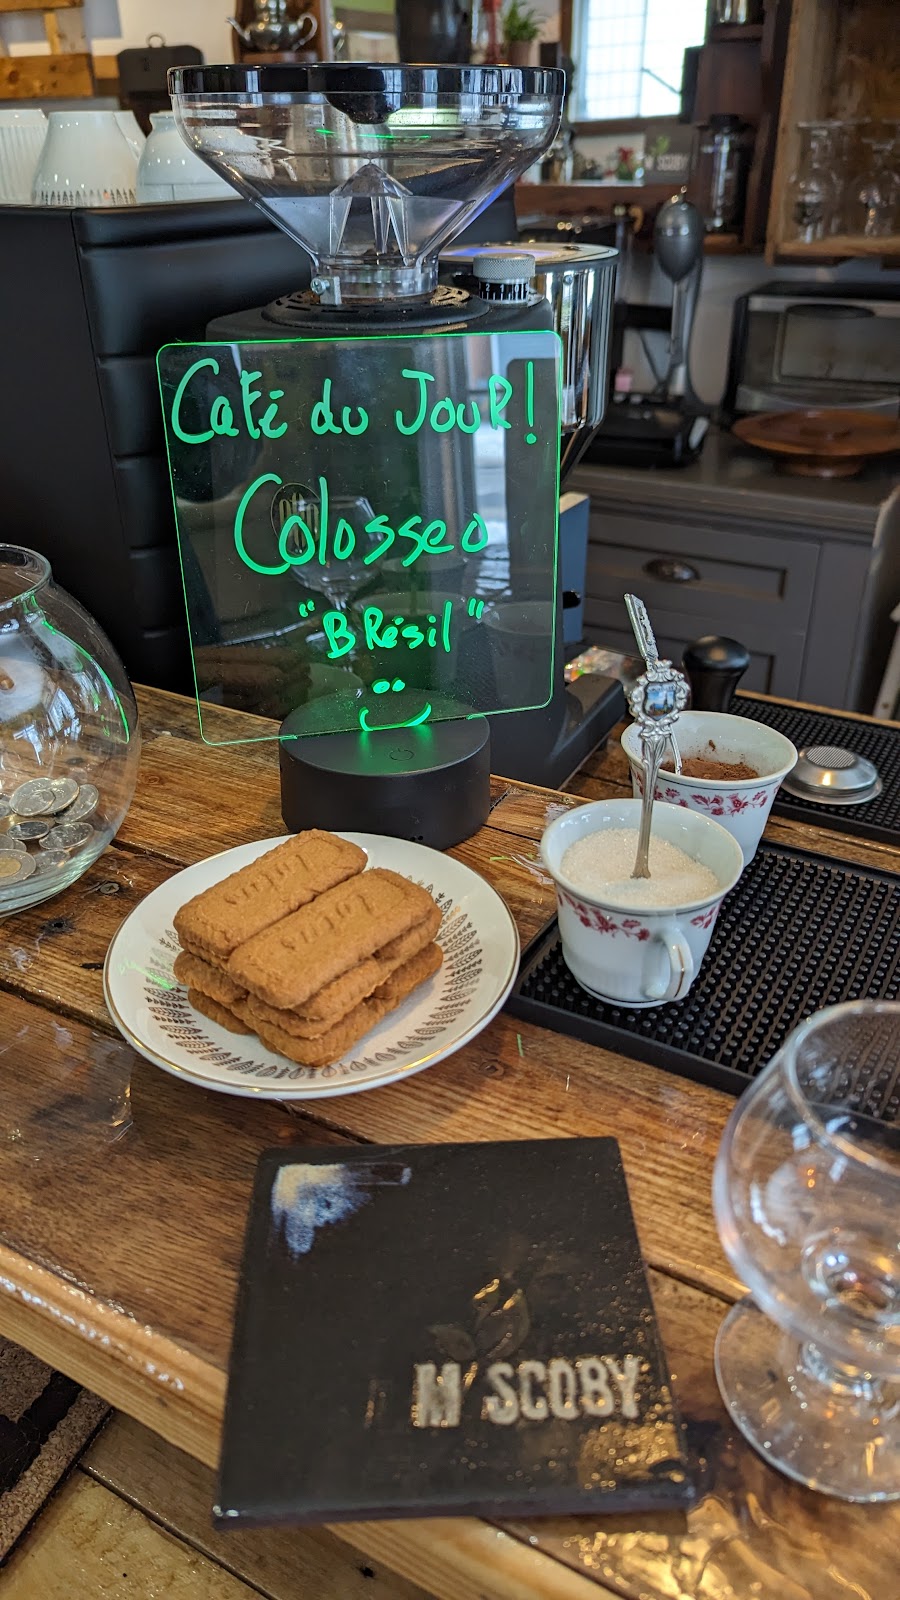 Café du Jour!
Colosseo
"Brésil"
Lotus
Lotus
M SCOBY
M SCOBY